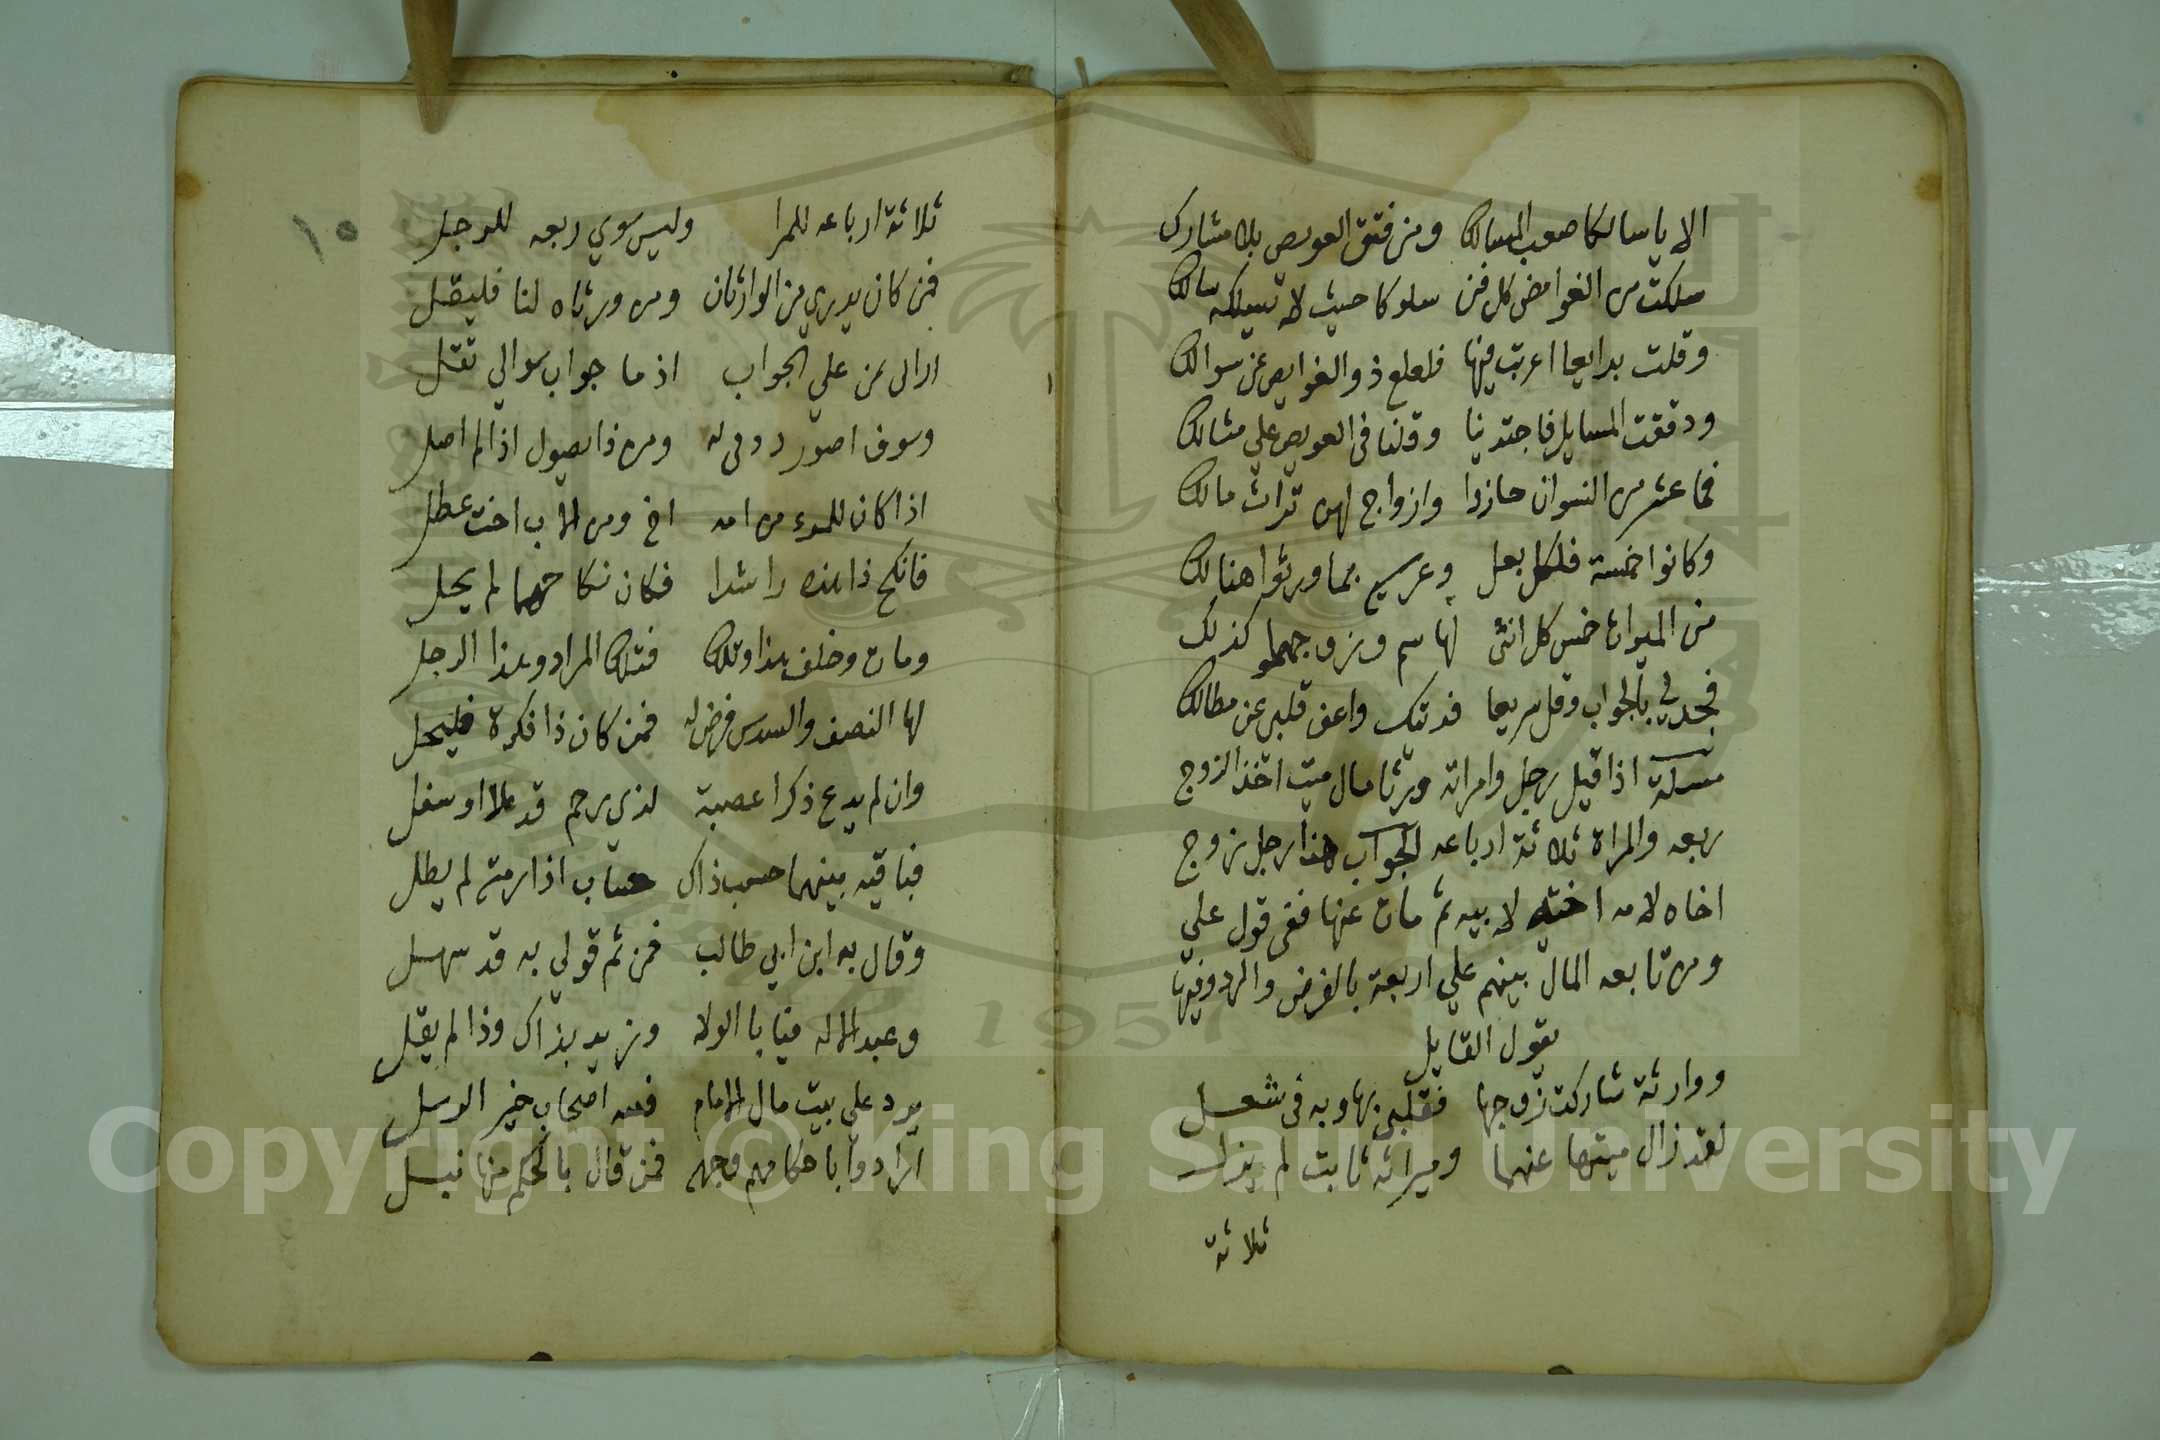 الا يا سالكا صعب المسالك ومن فتق العويص بلا مشارك
سلكت من الغوامض كل فن سلوكا حيث لا تسلكه سالك
وقلت بدايعا اعربت فيها فلعلع ذو الغوايص عن سوالك
ودققت المسايل فاجتدينا وقلنا في العويص علي مثالك
فما عشر من النسوان حازوا وازواج لهن تراث مالك
وكانوا خمسة فلكل بعل وعرس مما ورثوا هنالك
من الميراث خمس كل انثى لها سهم وزوجهما كذلك
فجد لي بالجواب وقل سريعا فدتك واعف قلبي عن مطالك
مسلة اذا قيل رجل وامراته ورثا مال ميت اخذ الزوج
ربعه والمراة ثلاثة ارباعه الجواب هذا رجل زوج
اخاه لامه اخته لابيه ثم مات عنها ففي قول علي
ومن تابعه المال بينهم علي اربعة بالفرض والرد وفيها
يقول القايل
ووارثة شاركت زوجها فقلبي بها وبه في شغل
لقد زال ميتها عنهما وميراثه ثابت لم يزل
ثلاثة
١٠
ثلاثة ارباعه للمرا وليس سوي ربعه للرجل
فمن كان يدري من الوارثان ومن ورثاه لنا فليقل
ارالى من علي الجواب اذ ما جواب سوالي تقل
وسوف اصور ومن ذا يصول اذا لم اصل
اذا كان للمرء من امه اخ ومن الاب اخت عطل
فانكح ذا هذه راشدا فكان نكاحهما لم يحل
ومات وخلف هذا وتلك فتلك المراد وهذا الرجل
لها النصف والسدس فرض له فمن كان ذا فكرة فليحل
وان لم يدع ذكرا عصبة لذي رحم قد علا او سفل
فباقيه بينهما حسب ذاك حساب اذا رمته لم يطل
وقال به ابن ابي طالب فمن ثم قولي به قد سهل
وعبد الاله فيابا الولا وزيد بذاك وذا لم يقل
يرد علي بيت مال الامام فسه اصحاب خير الرسل
ارادوا باحكامهم وجهه فمن قال بالحكم منها نبل
Copyright © King Saud University
1957